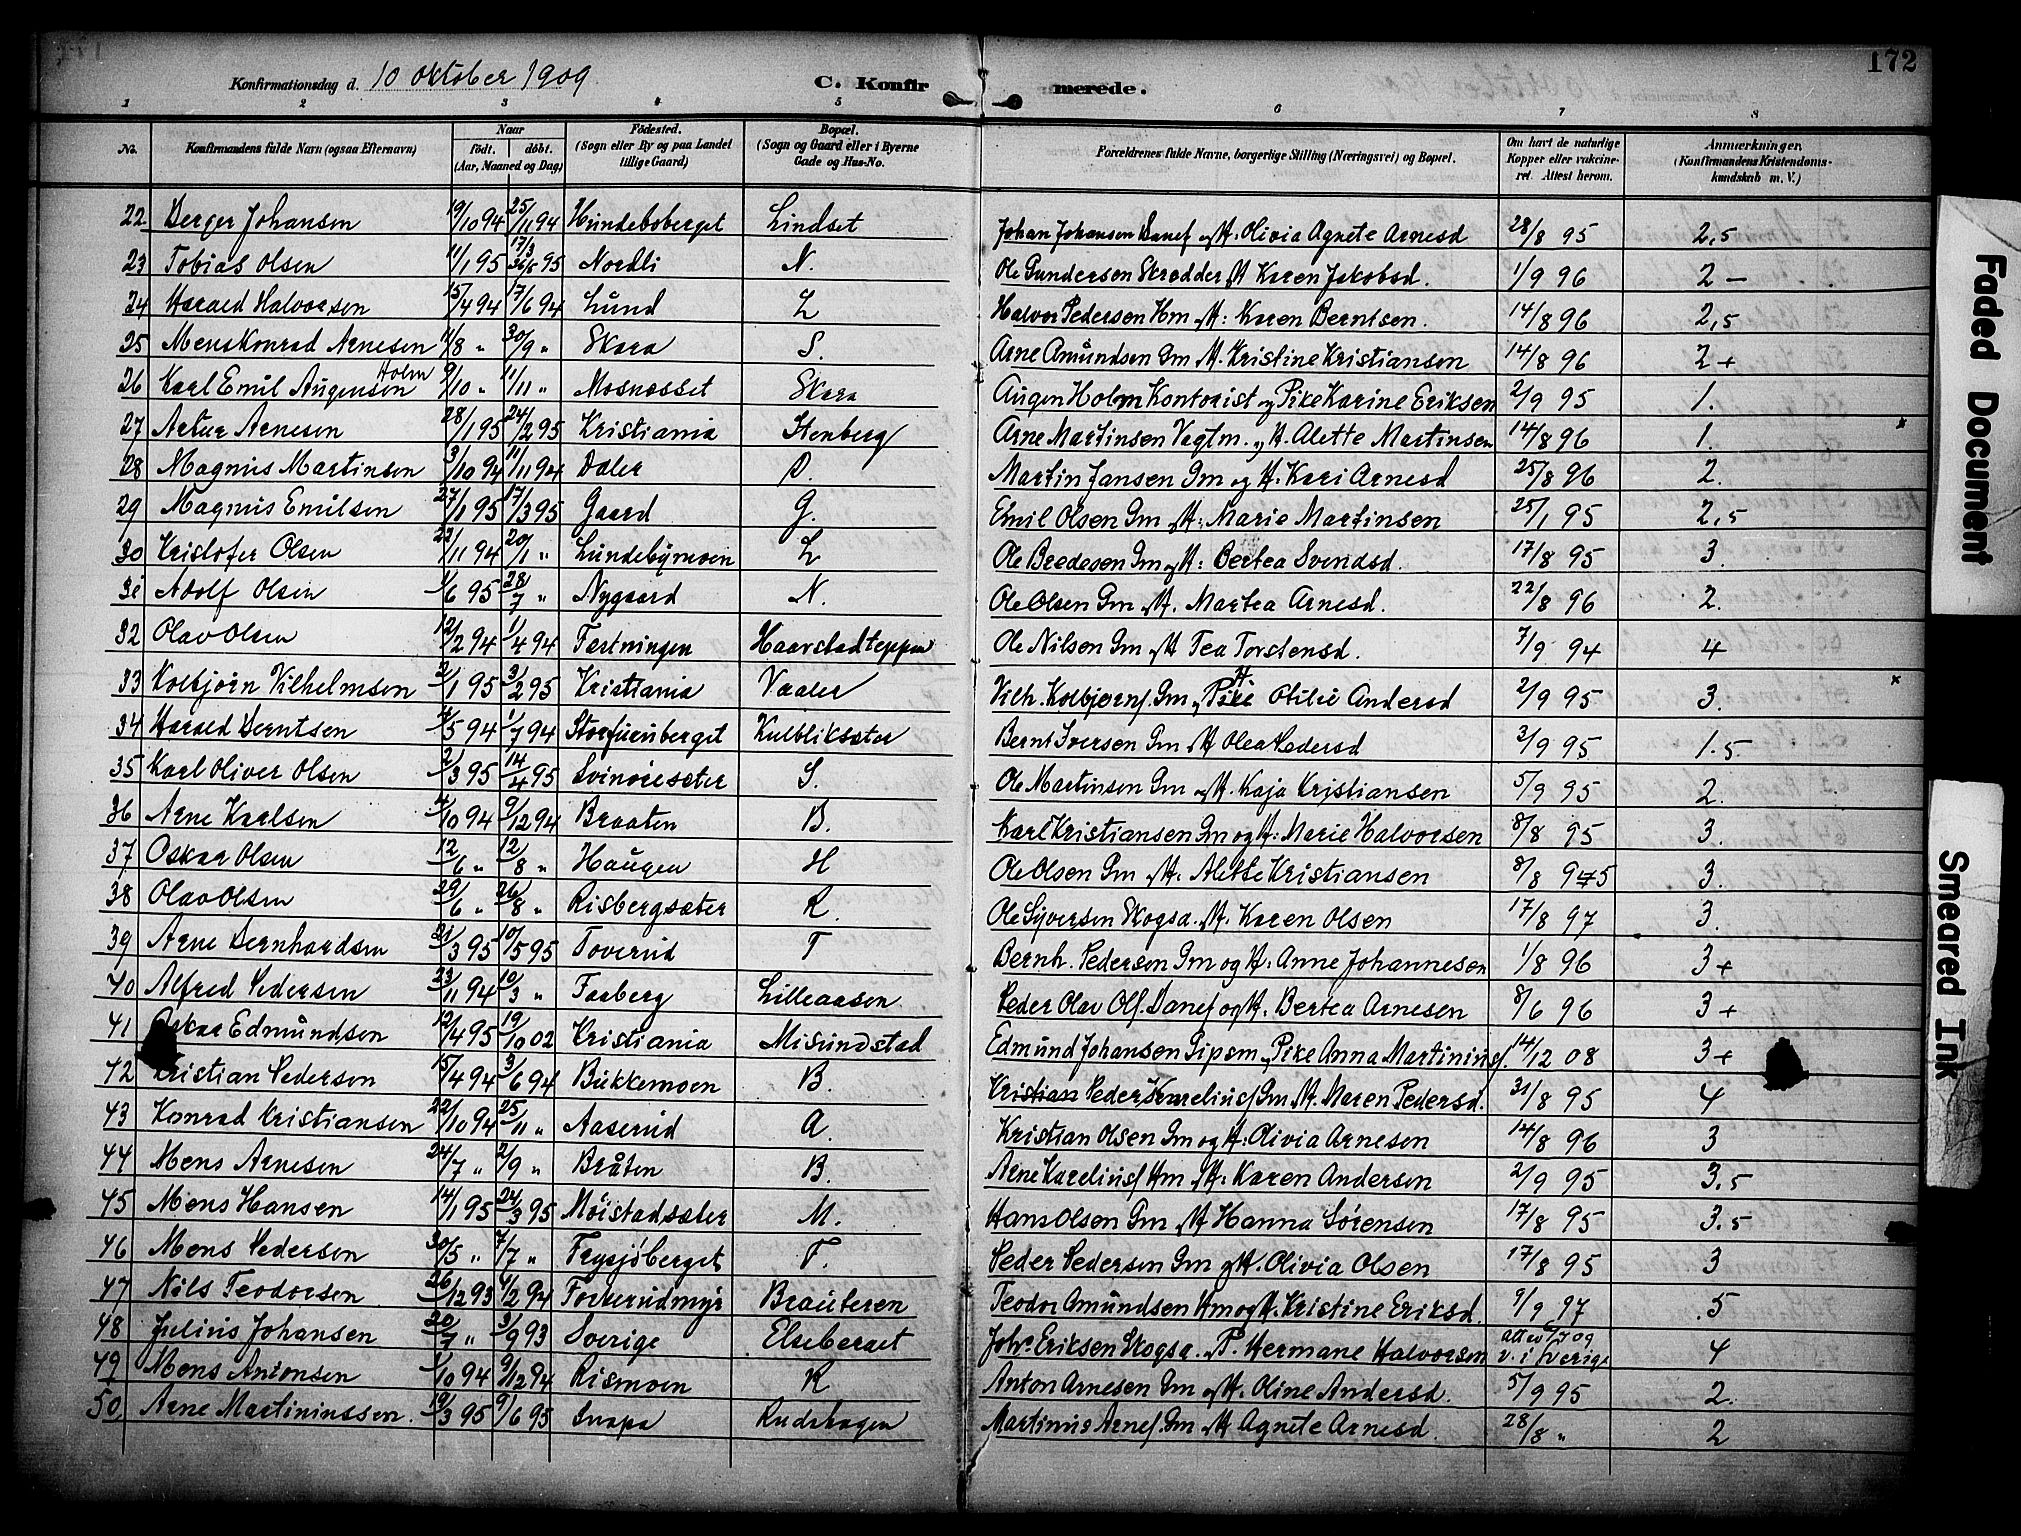 172
Konfirmationsdag d. 10 oktober 1909 C. Konfir merede.
1 2 3 4 5 6 7 8
No. Konfirmandens fulde Navn (ogsaa Efternavn) Naar Født. døbt. (Aar, Maaned og Dag) Fødested. (Sogn eller By og paa Landet tillige Gaard) Bopæl. (Sogn og Gaard eller i Byerne Gade og Hus-No. Forældrenes fulde Navne, borgerlige Stilling (Næringsvei) og Bopæl. Om havt de naturlige Kopper eller vakcineret. Attest herom. Anmærkninger. (Konfirmandens Kristendomskundskab m. V.)
22 Berger Johansen 19/10 94 25/11 94 Hundeboberget Lindset Johan Johansen Danef og H. Olivia Agnete Arnesd 28/8 95 2,5
23 Tobias Olsen 11/1 95 17/3 95 Nordli N. Ole Gundersen Skrædder H Karen Jakobsd. 1/9 96 2 –
24 Harald Halvorsen 15/4 94 17/6 94 Lund L Halvor Pedersen Hm og H: Karen Berntsen. 14/8 96 2,5
25 Mens Konrad Arnesen 11/8 „ 30/9 „ Skara S. Arne Amundsen Gm H. Kristine Kristiansen 14/8 96 2+
26 Karl Emil Augensen Holm 9/10 „ 11/11 „ Mosnesset Skara Augen Holm Kontorist og Pike Karine Eriksen 2/9 95 1.
27 Artur Arnesen 28/1 95 24/2 95 Kristiania Stenberg Arne Martinsen Vagtm. og H. Alette Martinsen 14/8 96 1.
28 Magnus Martinsen 3/10 94 11/11 94 Daler D. Martin Jansen Gm og H. Kari Arnesd 25/8 96 2.
29 Magnus Emilsen 27/1 95 17/3 95 Gaard G. Emil Olsen Gm og H: Marie Martinsen 25/1 95 2,5
30 Kristofer Olsen 23/11 94 20/1 „ Lundebymoen L Ole Bredesen Gm og H: Bertea Svendsd. 17/8 95 3.
31 Adolf Olsen 1/6 95 28/7 „ Nygaard N. Ole Olsen Gm og H. Martea Arnesd. 22/8 96 2.
32 Olav Olsen 12/2 94 1/4 94 Fæstningen Haarstadteppen Ole Nilson Gm og H Tea Torstensd. 7/9 94 4
33 Kolbjørn Vilhelmsen 2/1 95 3/2 95 Kristiania Vaaler Vilh. Kolbjørns. Gm og Pike H. Otilie Andersd 2/9 95 3.
34 Harald Berntsen 4/5 94 1/7 94 Storfuruberget Kulbliksæter Bernt Iversen Gm og H Olea Pedersd 3/9 95 1.5
35 Karl Oliver Olsen 2/3 95 14/4 95 Svinøresæter S. Ole Martinsen Gm og H. Kaja Kristiansen 5/9 95 2.
36 Arne Karlsen 4/10 94 9/12 94 Braaten B. Karl Kristiansen Gm og H: Marie Halvorsen 8/8 95 3.
37 Oskar Olsen 12/6 „ 12/8 „ Haugen H Ole Olsen Gm og H. Alette Kristiansen 8/8 975 3.
38 Olav Olsen 29/6 „ 26/8 „ Risbergsæter R. Ole Syversen Skogsa. H. Karen Olsen 17/8 97 3.
39 Arne Bernhardsen 21/3 95 10/5 95 Toverud T Bernh. Pedersen Gm og H: Anne Johannesen 1/8 96 3+
40 Alfred Pedersen 23/11 94 10/3 „ Faaberg Lilleaasen Peder Olav Ols. Danef og H. Bertea Arnesen 8/6 96 3+
41 Oskar Edmundsen 12/4 95 19/10 02 Kristiania Misundstad Edmund Johansen Gipsm og Pike Anna Martinius. 14/12 08 3+
42 Kristian Pedersen 15/4 94 3/6 94 Bukkemoen B. Kristian Peder Karelius Gm H. Maren Pedersd. 31/8 95 4
43 Konrad Kristiansen 22/10 94 25/11 „ Aaserud A. Kristian Olsen Gm og H: Olivia Arnesen 14/8 96 3
44 Mens Arnesen 24/7 „ 2/9 „ Bråten B. Arne Karelius Hm og H: Karen Andersen 2/9 95 3.5
45 Mens Hansen 14/1 95 24/3 95 Moistadsæter M. Hans Olsen Gm og H Hanna Sørensen 17/8 95 3.5
46 Mens Pedersen 30/5 „ 7/7 „ Frysjøberget F. Peder Pedersen Gm og H. Olivia Olsen 17/8 95 3
47 Nils Teodorsen 26/12 93 4/2 94 Torkerudmyr Brauteren Teodor Amundsen Hm og H. Kristine Eriksd. 9/9 97 .5
48 Julius Johansen 20/7 „ 3/9 93 Sverige Elseberget Johs. Eriksen Skogsa. P. Hermane Halvorsen att. v. i Sverige 4
49 Mens Antonsen 1/10 94 9/12 94 Rismoen R Anton Arnesen Gm og H. Oline Andersd. 5/9 95 2.
50 Arne Martiniussen. 19/3 95 9/6 95 Snapa Rudshagen Martinius Arnes. Gm og H Agnete Arnesd. 28/8 „ 2
Faded Document
Smeared Ink